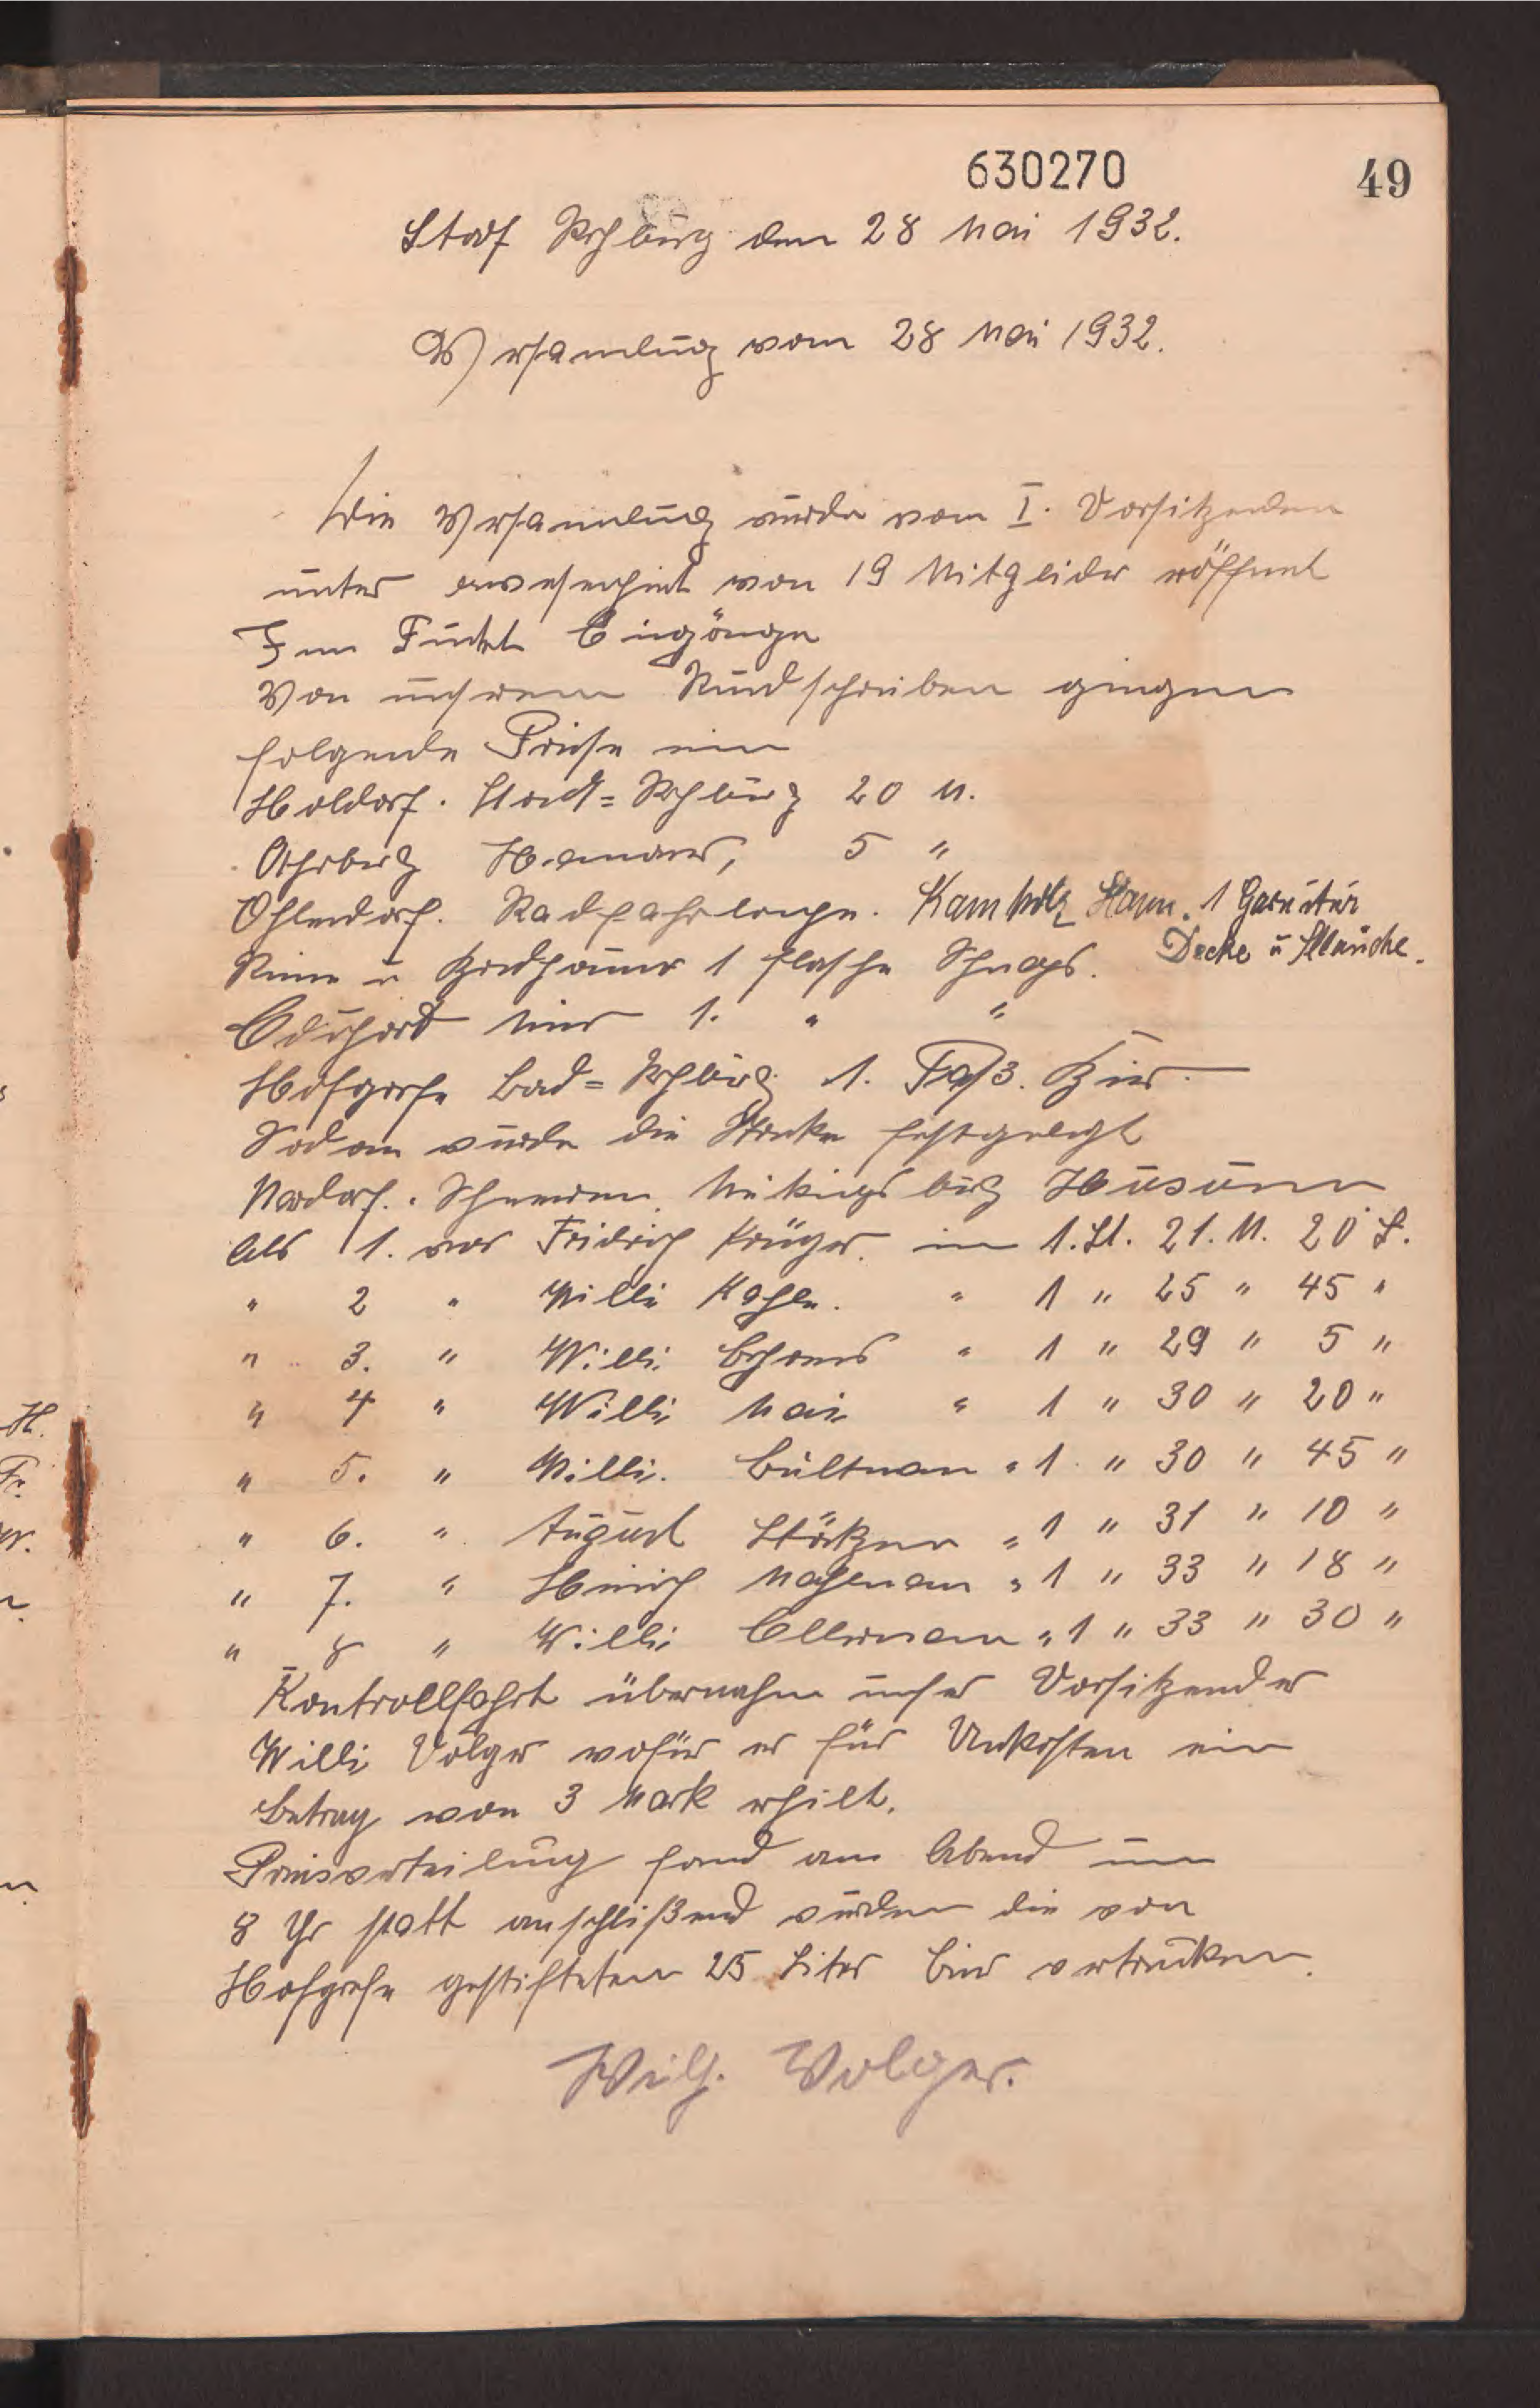 630270 49
Stadt Rehburg den 28 Mai 1932.
Versamlung vom 28 Mai 1932.
Die Versamlung wurde vom I. Vorsitzenden
unter anwesenheit von 19 Mitglieder eröffnet
Zum Punkt Eingänge
Von unserem Rundschreiben gingen
folgende Preise ein
Holdorf. Stadt=Rehburg 20 M.
Hannover, 5 "
Ohlendorf. Radfahrlampe. Kamholz Hann. 1 Garnitur
Decke u Schläuche.
1 flasche Schnaps.
1. " "
Hofgrefe Bad=Rehburg 1. Faß. Bier.
Sodan wurde die Streke festgelegt
Mardorf. Schneeren. Husum
Als 1. war Fridrich Krüger. in 1. St. 21. M. 20 S.
" 2 " Willi Kahle. " 1 " 25 " 45 "
" 3. " Willi Behrens " 1 " 29 " 5 "
" 4 " Willi Mai " 1 " 30 " 20 "
" 5. " Willi. Bültman " 1 " 30 " 45 "
" 6. " August " 1 " 31 " 10 "
" 7. " Heinrich " 1 " 33 " 18 "
" 8 " Willi Ellerman " 1 " 33 " 30 "
Kontrollfahrt übernahm unser Vorsitzender
Willi Volger wofür er für Unkosten ein
Betrag von 3 Mark erhilt.
Preisverteilung fand am Abend um
8 Uhr statt anschlißend wurden die von
Hofgrefe gestifteten 25 Liter Bier vertrunken.
Wilh. Volger.